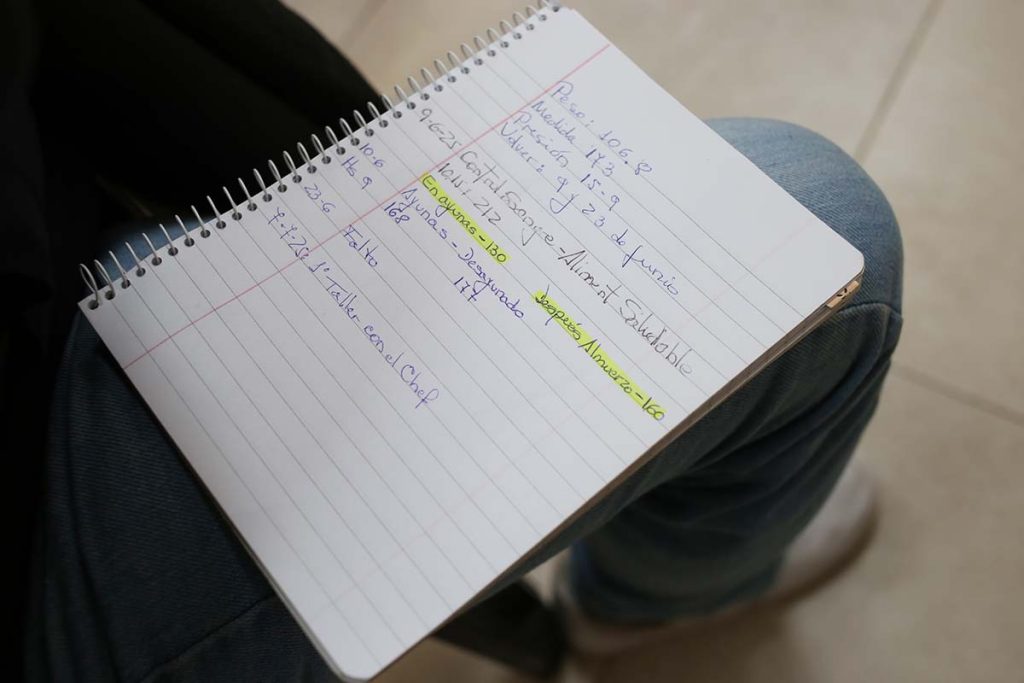 Peso: 106.8
Medida 173
Presión 15-9
Volver: 9 y 23 de junio
9-6-25 Control Sangre - Aliment Saludable
10.15 + 212
En ayunas - 130 después Almuerzo - 160
10.6 Ayunas - Desayunado
Hs 9 168 177
23.6 Falto
7-7-25 1° Taller con el Chef